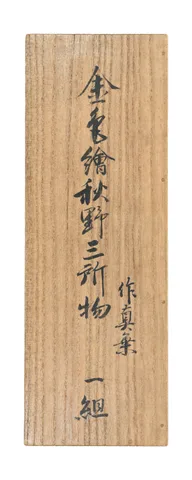 金色繪秋野三所物 一組
作真乗